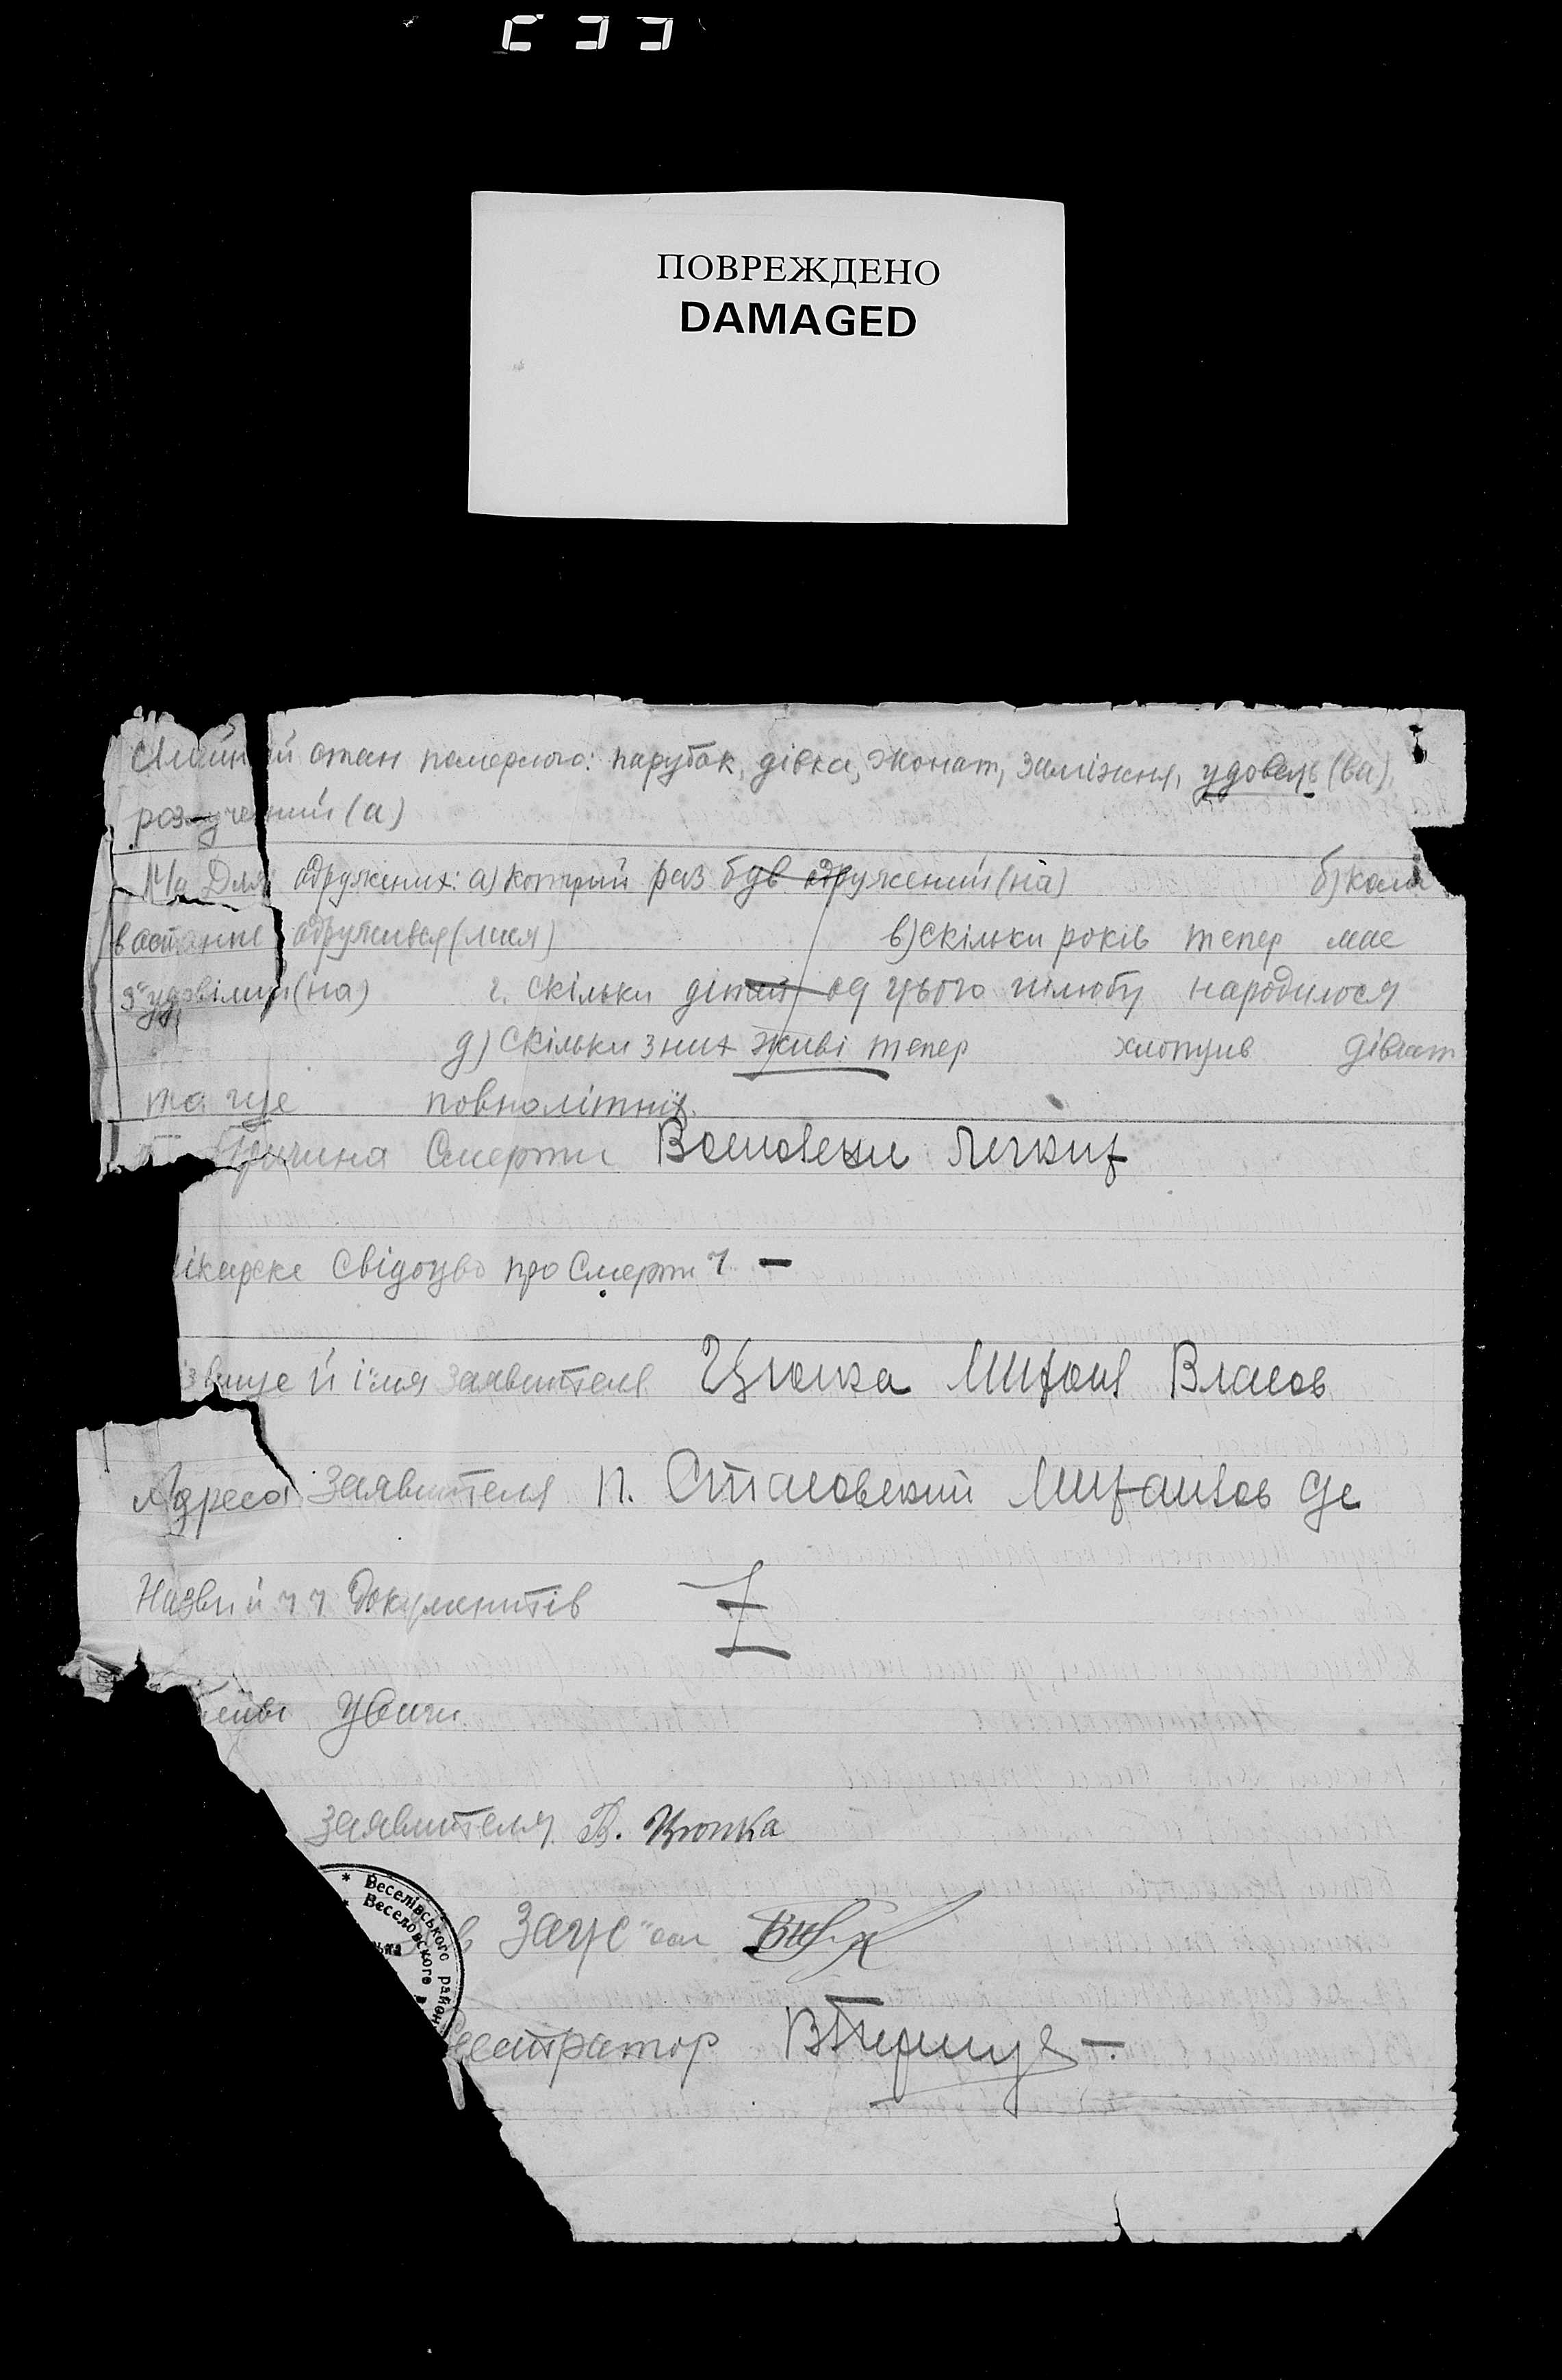 ПОВРЕЖДЕНО
DAMAGED
стан померлого: парубок, дівка, Жонат, заміжня, удовець (ва),
розлучений (а)
Для одружених: а) котрий раз був одружений (на) б) коли
в останнє одружився (лися) в) скільки років тепер має
г. скільки дітей од цього шлюбу народилося
д) Скільки з них живі тепер хлопців дівчат
та ще повнолітніх
Причина Смерти Восповені легких
ікарске свідоцво про Смерть ч —
звище й імя заявителя Цюпка Михаил Власов
Адреса заявителя п. Стасовский Михайлов Де
Назви й ч ч Документів
Уваги
заявителя В. Цюпка
* Веселівського район
* Веселовского
в Загс"ом
еєстратор